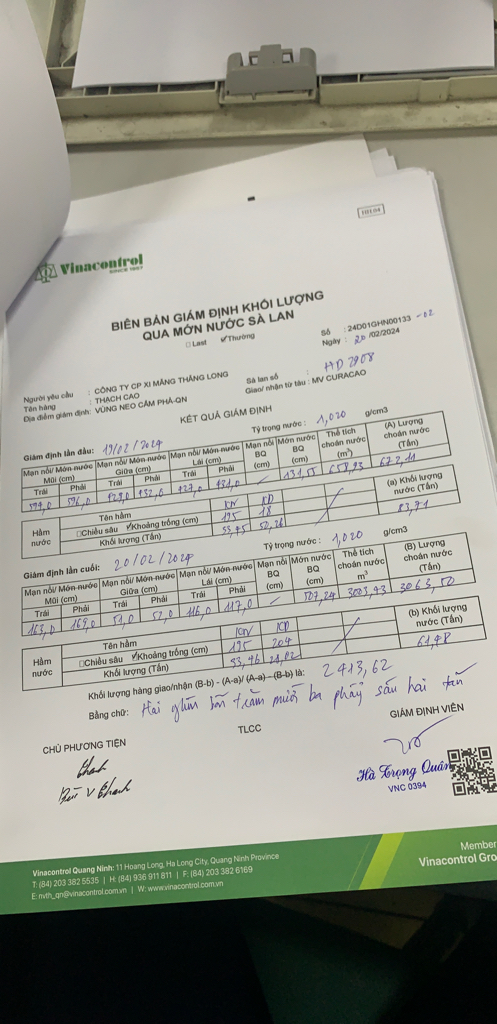 HH04
Vinacontrol
SINCE 1957
BIÊN BẢN GIÁM ĐỊNH KHỐI LƯỢNG
QUA MỚN NƯỚC SÀ LAN
□Last ✓Thường
Số : 24D01GHN00133 -02
Ngày : 20 /02/2024
Người yêu cầu : CÔNG TY CP XI MĂNG THĂNG LONG
Tên hàng : THẠCH CAO
Địa điểm giám định: VÙNG NEO CẨM PHẢ-QN
Sà lan số : HD 2908
Giao/ nhận từ tàu : MV CURACAO
KẾT QUẢ GIÁM ĐỊNH
Giám định lần đầu: 19/02/2024 Tỷ trọng nước : 1,020 g/cm3
Mạn nổi/ Mớn nước Mũi (cm) Mạn nổi/ Mớn nước Giữa (cm) Mạn nổi/ Mớn nước Lái (cm) Mạn nổi BQ (cm) Mớn nước BQ (cm) Thể tích choán nước (m³) (A) Lượng choán nước (Tấn)
Trái Phải Trái Phải Trái Phải
596,0 432,0 427,0 431,0 131,55 658,93 672,11
Hầm nước Tên hầm KN KD (a) Khối lượng nước (Tấn)
□Chiều sâu ✓Khoảng trống (cm) 195 18
Khối lượng (Tấn) 50,26 83,71
Giám định lần cuối: 20/02/2024 Tỷ trọng nước : 1,020 g/cm3
Mạn nổi/ Mớn nước Mũi (cm) Mạn nổi/ Mớn nước Giữa (cm) Mạn nổi/ Mớn nước Lái (cm) Mạn nổi BQ (cm) Mớn nước BQ (cm) Thể tích choán nước m³ (B) Lượng choán nước (Tấn)
Trái Phải Trái Phải Trái Phải
163,0 169,0 51,0 52,0 116,0 117,0 507,24 3003,43 3063,50
Hầm nước Tên hầm KN KD (b) Khối lượng nước (Tấn)
□Chiều sâu ✓Khoảng trống (cm) 195 204
Khối lượng (Tấn) 33,46 61,48
Khối lượng hàng giao/nhận (B-b) - (A-a)/ (A-a) - (B-b) là: 2413,62
Bằng chữ: Hai ghìn bốn trăm mười ba phẩy sáu hai tấn
CHỦ PHƯƠNG TIỆN TLCC GIÁM ĐỊNH VIÊN
Hà Trọng Quân
VNC 0394
Vinacontrol Quang Ninh: 11 Hoang Long, Ha Long City, Quang Ninh Province
T: (84) 203 382 5535 | H: (84) 936 911 811 | F: (84) 203 382 6169
E: nvth_qn@vinacontrol.com.vn | W: www.vinacontrol.com.vn
Member
Vinacontrol Gro